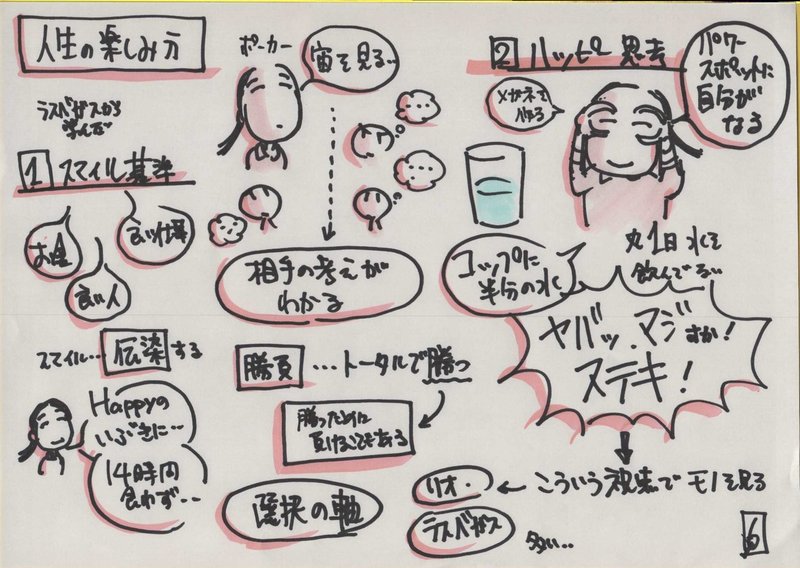 人生の楽しみ方
ラスベガスから
学んだ
1 スマイル基準
お金
良い人
良い仕事
スマイル…伝染する
Happyの
いぶきに…
14時間
食わず…
ポーカー
宙を見る…
相手の考えが
わかる
勝負…トータルで勝つ
勝つために
負けることもある
選択の軸
2 ハッピー思考
メガネを
パワー
スポットに
自分が
なる
コップに
半分の水
丸1日水を
飲んでない
ヤバッ、マジすか!
ステキ!
こういう視点でモノを見る
リオ・
ラスベガス
多い…
6